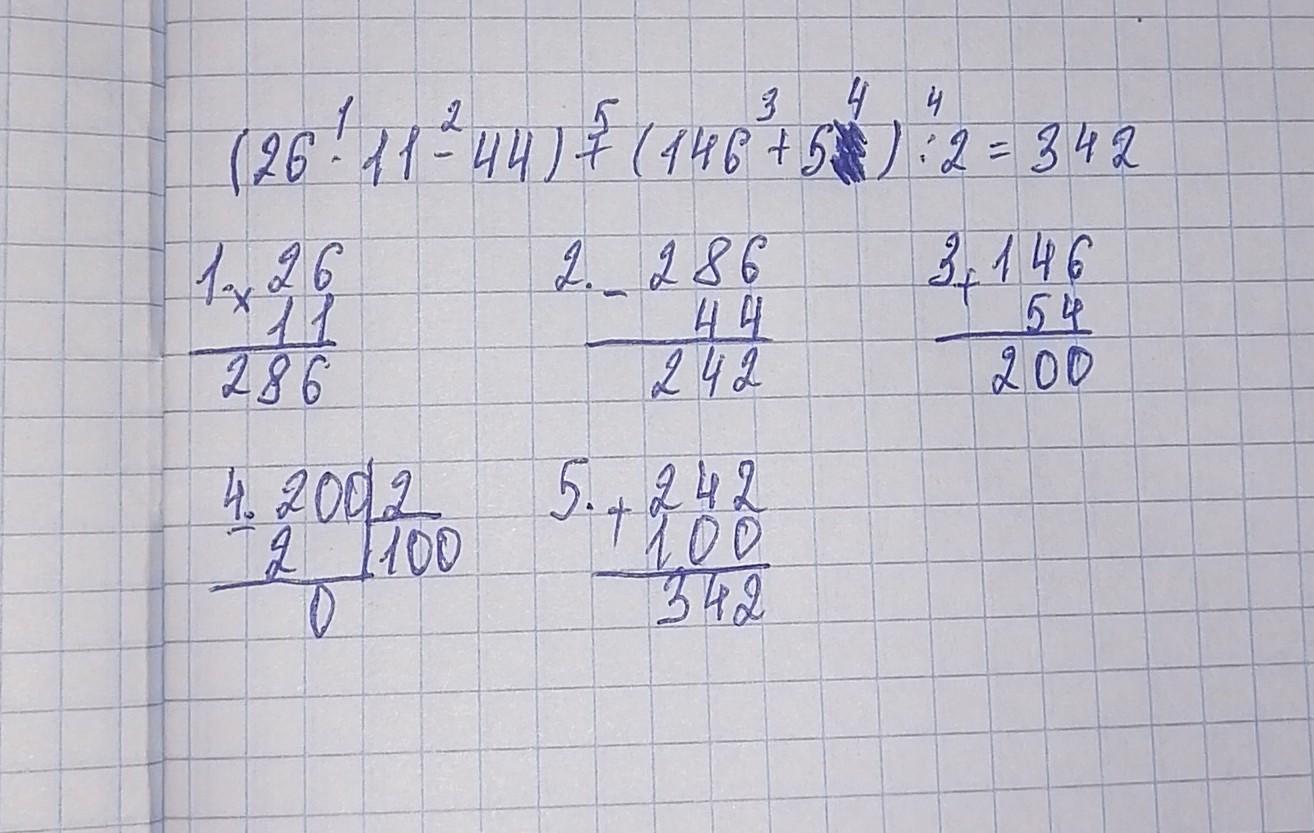 1 2 5 3 4 4
(26 · 11 - 44) + (146 + 5 ) : 2 = 342
1. × 26 2. - 286 3. + 146
11 44 54
286 242 200
4. 200 2 5. + 242
- 2 100 100
0 342